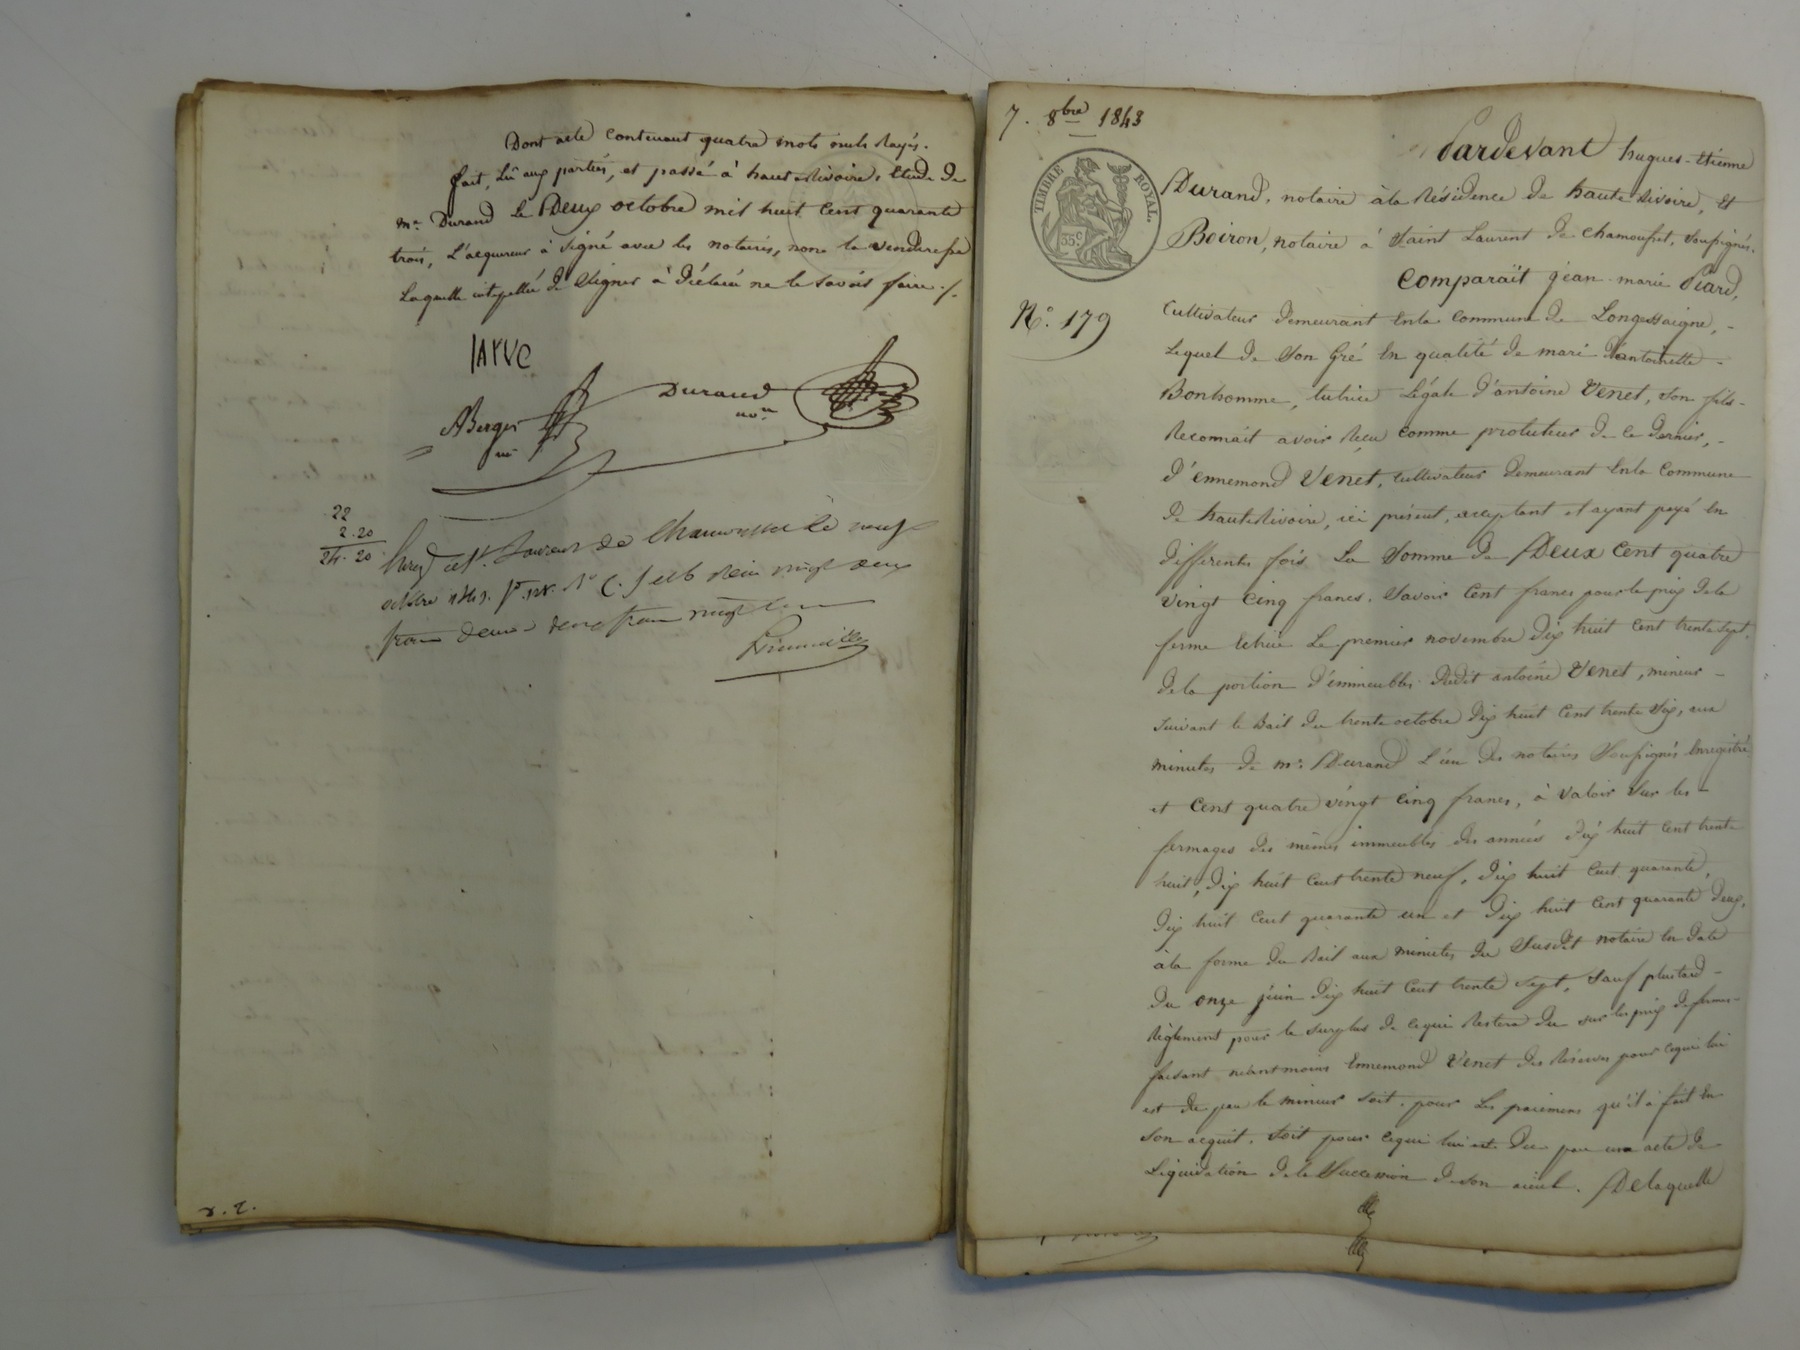 Dont acte contenant quatre mots nuls rayés.
fait, lû aux parties, et passé à haute Rivoire, Etude de
me. Durand Le Deux octobre mil huit Cent quarante
trois, L'acquereur à Signé avec les notaires, non la venderesse
Laquelle interpellée de Signer à Déclaré ne le savoir faire ./.
Durand
nore
ABerger
nre
22
2.20
24.20
St. Laurent de Chamousset le neuf
octobre 1843. fo. vo. C. 5 et 6 Reçu vingt deux
francs deux francs vingt
r. 2.
7. 8bre 1843
Pardevant hugues-Etienne
TIMBRE ROYAL.
35c
Durand, notaire à la Résidence de haute Rivoire, Et
Boiron, notaire à Saint Laurent de Chamousset, Soussignés.
Comparaît jean-marie Piard,
No. 179
Cultivateur Demeurant Enla Commune de Longessaigne, -
Lequel de Son Gré En qualité de mari D'antoinette -
Bonhomme, tutrice Légale d'antoine Venet, Son fils -
Reconnait avoir Reçu Comme protuteur de Ce dernier, -
d'Ennemond Venet, Cultivateur Demeurant Enla Commune
de haute Rivoire, ici présent, acceptant et ayant payé En
differentes fois La Somme de Deux Cent quatre
vingt Cinq francs. Savoir Cent francs pour le prix de la
ferme Echue Le premier novembre Dix huit Cent trente sept,
de la portion D'immeubles Dudit antoine Venet, mineur -
Suivant le Bail du trente octobre Dix huit Cent trente Six, aux
minutes de me. Durand L'un des notaires Soussignés Enregistré
et Cent quatre vingt Cinq francs, à Valoir Sur les -
fermages des mêmes immeubles des années Dix huit Cent trente
huit, Dix huit Cent trente neuf, Dix huit Cent quarante,
Dix huit Cent quarante un et Dix huit Cent quarante Deux,
à la forme du Bail aux minutes du Susdit notaire En date
du onze juin Dix huit Cent trente Sept, Sauf plus tard -
Règlement pour le surplus de Cequi Restera du sur les prix de ferme -
faisant néantmoins Ennemond Venet des Réserves pour Cequi lui
est du par le mineur soit pour Les paiemens qu'il à fait En
Son acquit, Soit pour Cequi lui est Du par un acte de
Liquidation de la Succession de Son aïeul. De laquelle